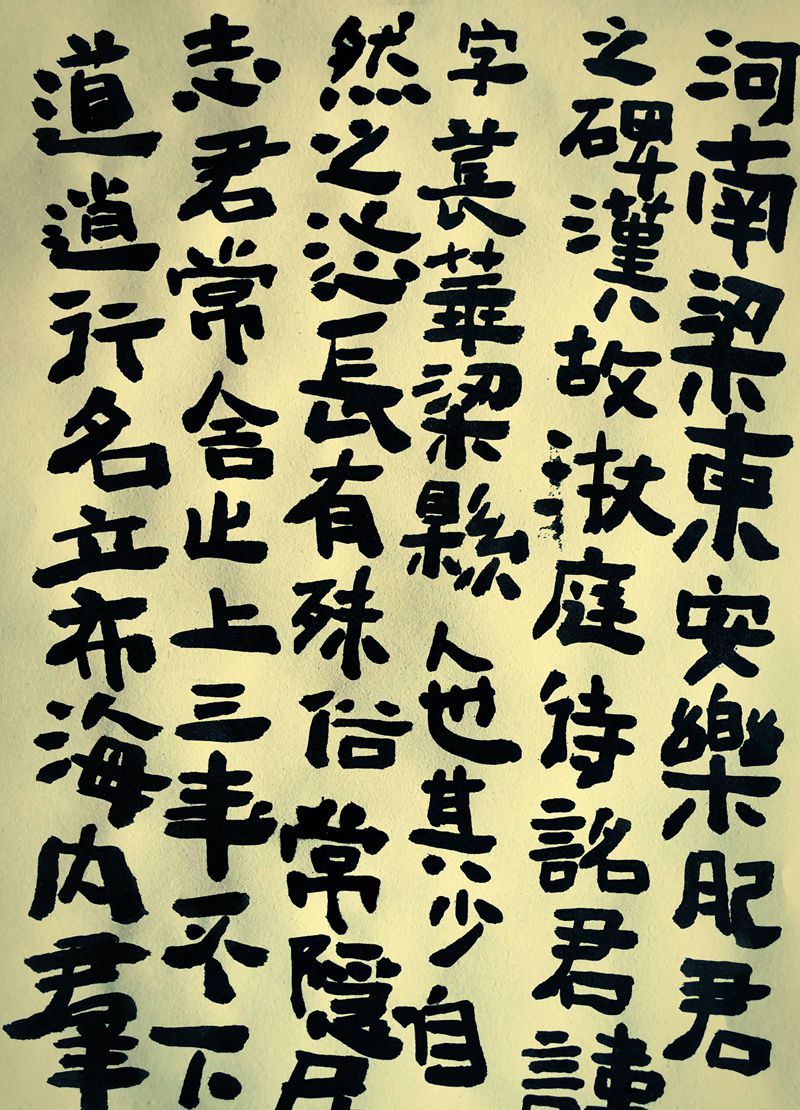 河南梁東安樂肥君
之碑漢故庭待詺君諱
字萇華梁縣人也其少自
然之恣長有殊俗常隱居
志君常舍止上三年不下
道逍行名立布海內羣